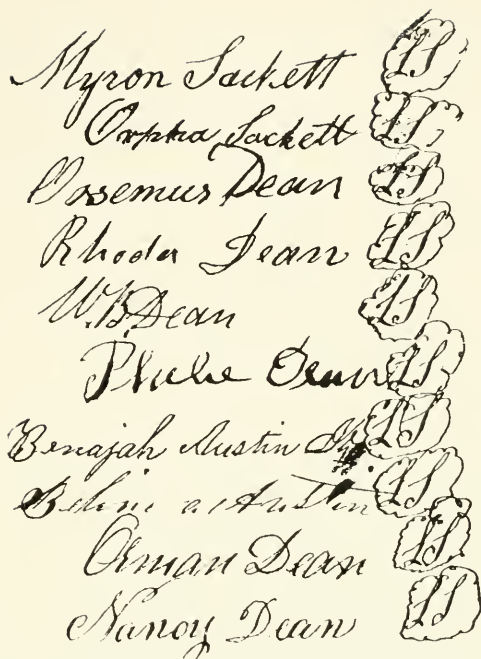 Myron Sackett LS
Orpha Sackett LS
Onsemus Dean LS
Rhoda Dean LS
W. B. Dean LS
Phebe Dean LS
Benajah Austin Jr. LS
Austin LS
Orman Dean LS
Nancy Dean LS